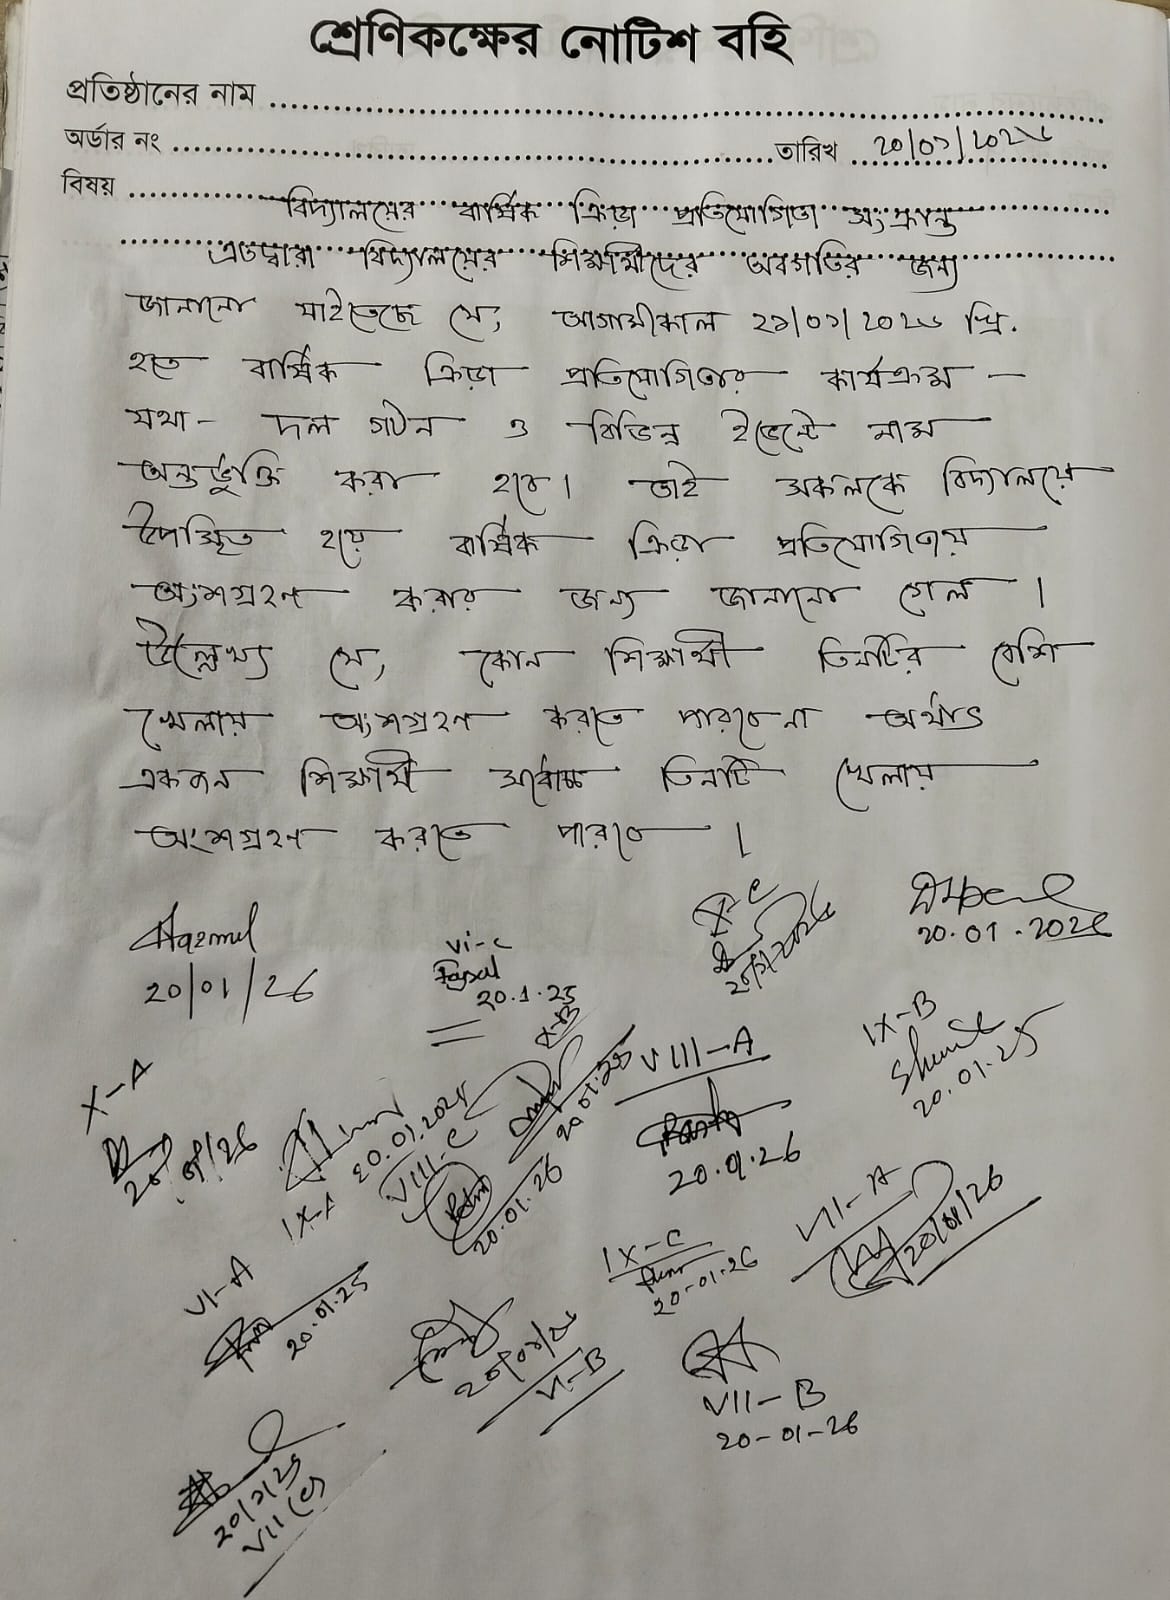 শ্রেণিকক্ষের নোটিশ বহি
প্রতিষ্ঠানের নাম
অর্ডার নং তারিখ ২০/০১/২০২৬
বিষয় বিদ্যালয়ের বার্ষিক ক্রিড়া প্রতিযোগিতা সংক্রান্ত
এতদ্বারা বিদ্যালয়ের শিক্ষার্থীদের অবগতির জন্য
জানানো যাইতেছে যে, আগামীকাল ২১/০১/২০২৬ খ্রি.
হতে বার্ষিক ক্রিড়া প্রতিযোগিতার কার্যক্রম –
যথা - দল গঠন ও বিভিন্ন ইভেন্টে নাম
অন্তর্ভুক্তি করা হবে। তাই সকলকে বিদ্যালয়ে
উপস্থিত হয়ে বার্ষিক ক্রিড়া প্রতিযোগিতায়
অংশগ্রহণ করার জন্য জানানো গেল ।
উল্লেখ্য যে, কোন শিক্ষার্থী তিনটির বেশি
খেলায় অংশগ্রহণ করতে পারবেনা অর্থাৎ
একজন শিক্ষার্থী সর্বোচ্চ তিনটি খেলায়
অংশগ্রহণ করতে পারবে ।
Nazmul
20/01/26
VI-C
Faysal
20.1.25
X-C
20/01/2026
20.01.2026
X-A
20/01/26
20.01.2026
IX-A
VIII-C
20.01.26
X-B
20.01.25
VIII-A
20.01.26
IX-B
20.01.25
VI-A
20.01.25
20/01/26
VI-B
IX-C
20-01-26
VII-A
20/01/26
VII-B
20-01-26
20/1/25
VII (C)